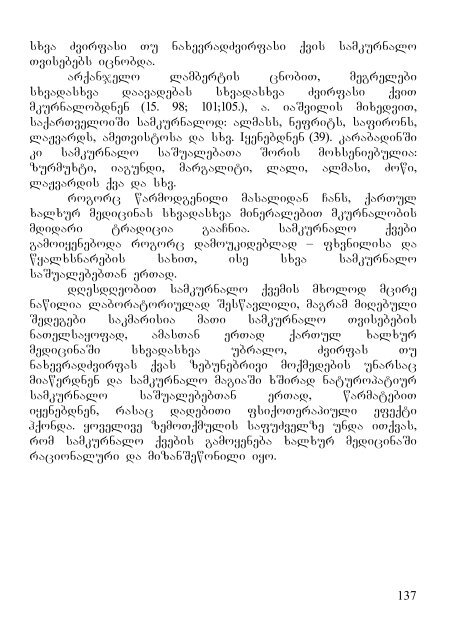 სხვა ძვირფასი თუ ნახევრადძვირფასი ქვის სამკურნალო
თვისებებს იცნობდა.
არქანჯელო ლამბერტის ცნობით, მეგრელები
სხვადასხვა დაავადებას სხვადასხვა ძვირფასი ქვით
მკურნალობდნენ (15. 98; 101;105.), ა. იაშვილის მიხედვით,
საქართველოიში სამკურნალოდ: ალმასს, ნეფრიტს, საფირონს,
ლაჟვარდს, ამეთვისტოსა და სხვ. იყენებდნენ (39). კარაბადინში
კი სამკურნალო საშუალებათა შორის მოხსენიებულია:
ზურმუხტი, იაგუნდი, მარგალიტი, ლალი, ალმასი, ძოწი,
ლაჟვარდის ქვა და სხვ.
როგორც წარმოდგენილი მასალიდან ჩანს, ქართულ
ხალხურ მედიცინას სხვადასხვა მინერალებით მკურნალობის
მდიდარი ტრადიცია გააჩნია. სამკურნალო ქვები
გამოიყენებოდა როგორც დამოუკიდებლად – ფხვნილისა და
წყალხსნარების სახით, ისე სხვა სამკურნალო
საშუალებებთან ერთად.
დღესდღეობით სამკურნალო ქვემის მხოლოდ მცირე
ნაწილია ლაბორატორიულად შესწავლილი, მაგრამ მიღებული
შედეგები საკმარისია მათი სამკურნალო თვისებების
ნათელსაყოფად, ამასთან ერთად ქართულ ხალხურ
მედიცინაში სხვადასხვა უბრალო, ძვირფას თუ
ნახევრადძვირფას ქვას ზებუნებრივი მოქმედების უნარსაც
მიაწერდნენ და სამკურნალო მაგიაში ხშირად ნატუროპატიურ
სამკურნალო საშუალებებთან ერთად, წარმატებით
იყენებდნენ, რასაც დადებითი ფსიქოთერაპიული ეფექტი
ჰქონდა. ყოველივე ზემოთქმულის საფუძველზე უნდა ითქვას,
რომ სამკურნალო ქვების გამოყენება ხალხურ მედიცინაში
რაციონალური და მიზანშეწონილი იყო.
137